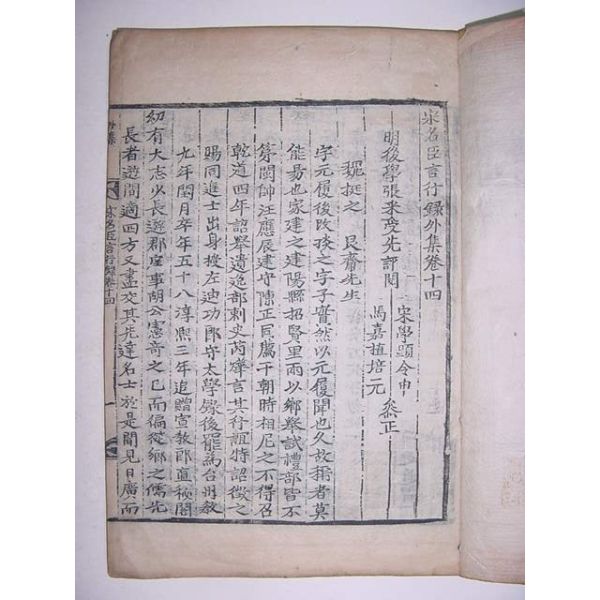 宋名臣言行録外集卷十四
明後學張采受先評閱
宋學顯令申
馬嘉植培元
叅正
魏挺之 艮齋先生
字元履後改掞之字子實然以元履聞也久故稱者莫
能易也家建之建陽縣招賢里兩以鄉舉試禮部皆不
第閩帥汪應辰建守陳正同薦于朝時相尼之不得召
乾道四年詔舉遺逸部刺史芮燁言其行誼特詔徵之
賜同進士出身授左迪功郎守太學錄後罷爲台州教
九年閏月卒年五十八淳熙三年追贈宣敎郎直秘閣
幼有大志少長遊郡庠事胡公憲奇之已而徧從鄉之儒先
長者遊間適四方又盡交其先達名士於是聞見日廣而
外集 宋名臣言行錄卷十四 一